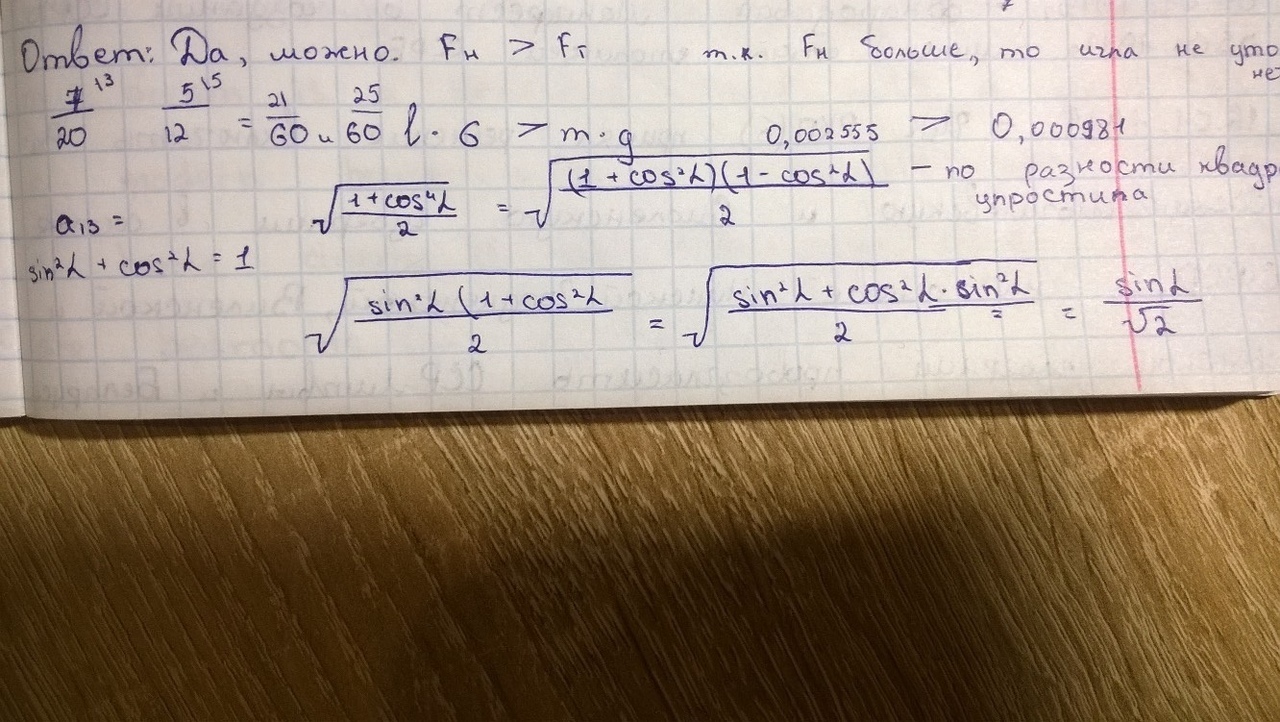 Ответ: Да, можно. Fн > Fт т.к. Fн больше, то игла не уто
нет
7\3/20 5\5/12 = 21/60 и 25/60 l · б > m·g 0,002555 > 0,000981
a₁₃ = √((1+cos⁴α)/2) = √((1+cos²α)(1-cos²α)/2) – по разности квадр
упростила
sin²α + cos²α = 1
√(sin²α (1+cos²α/2) = √((sin²α + cos²α · sin²α)/2) = = sinα/√2